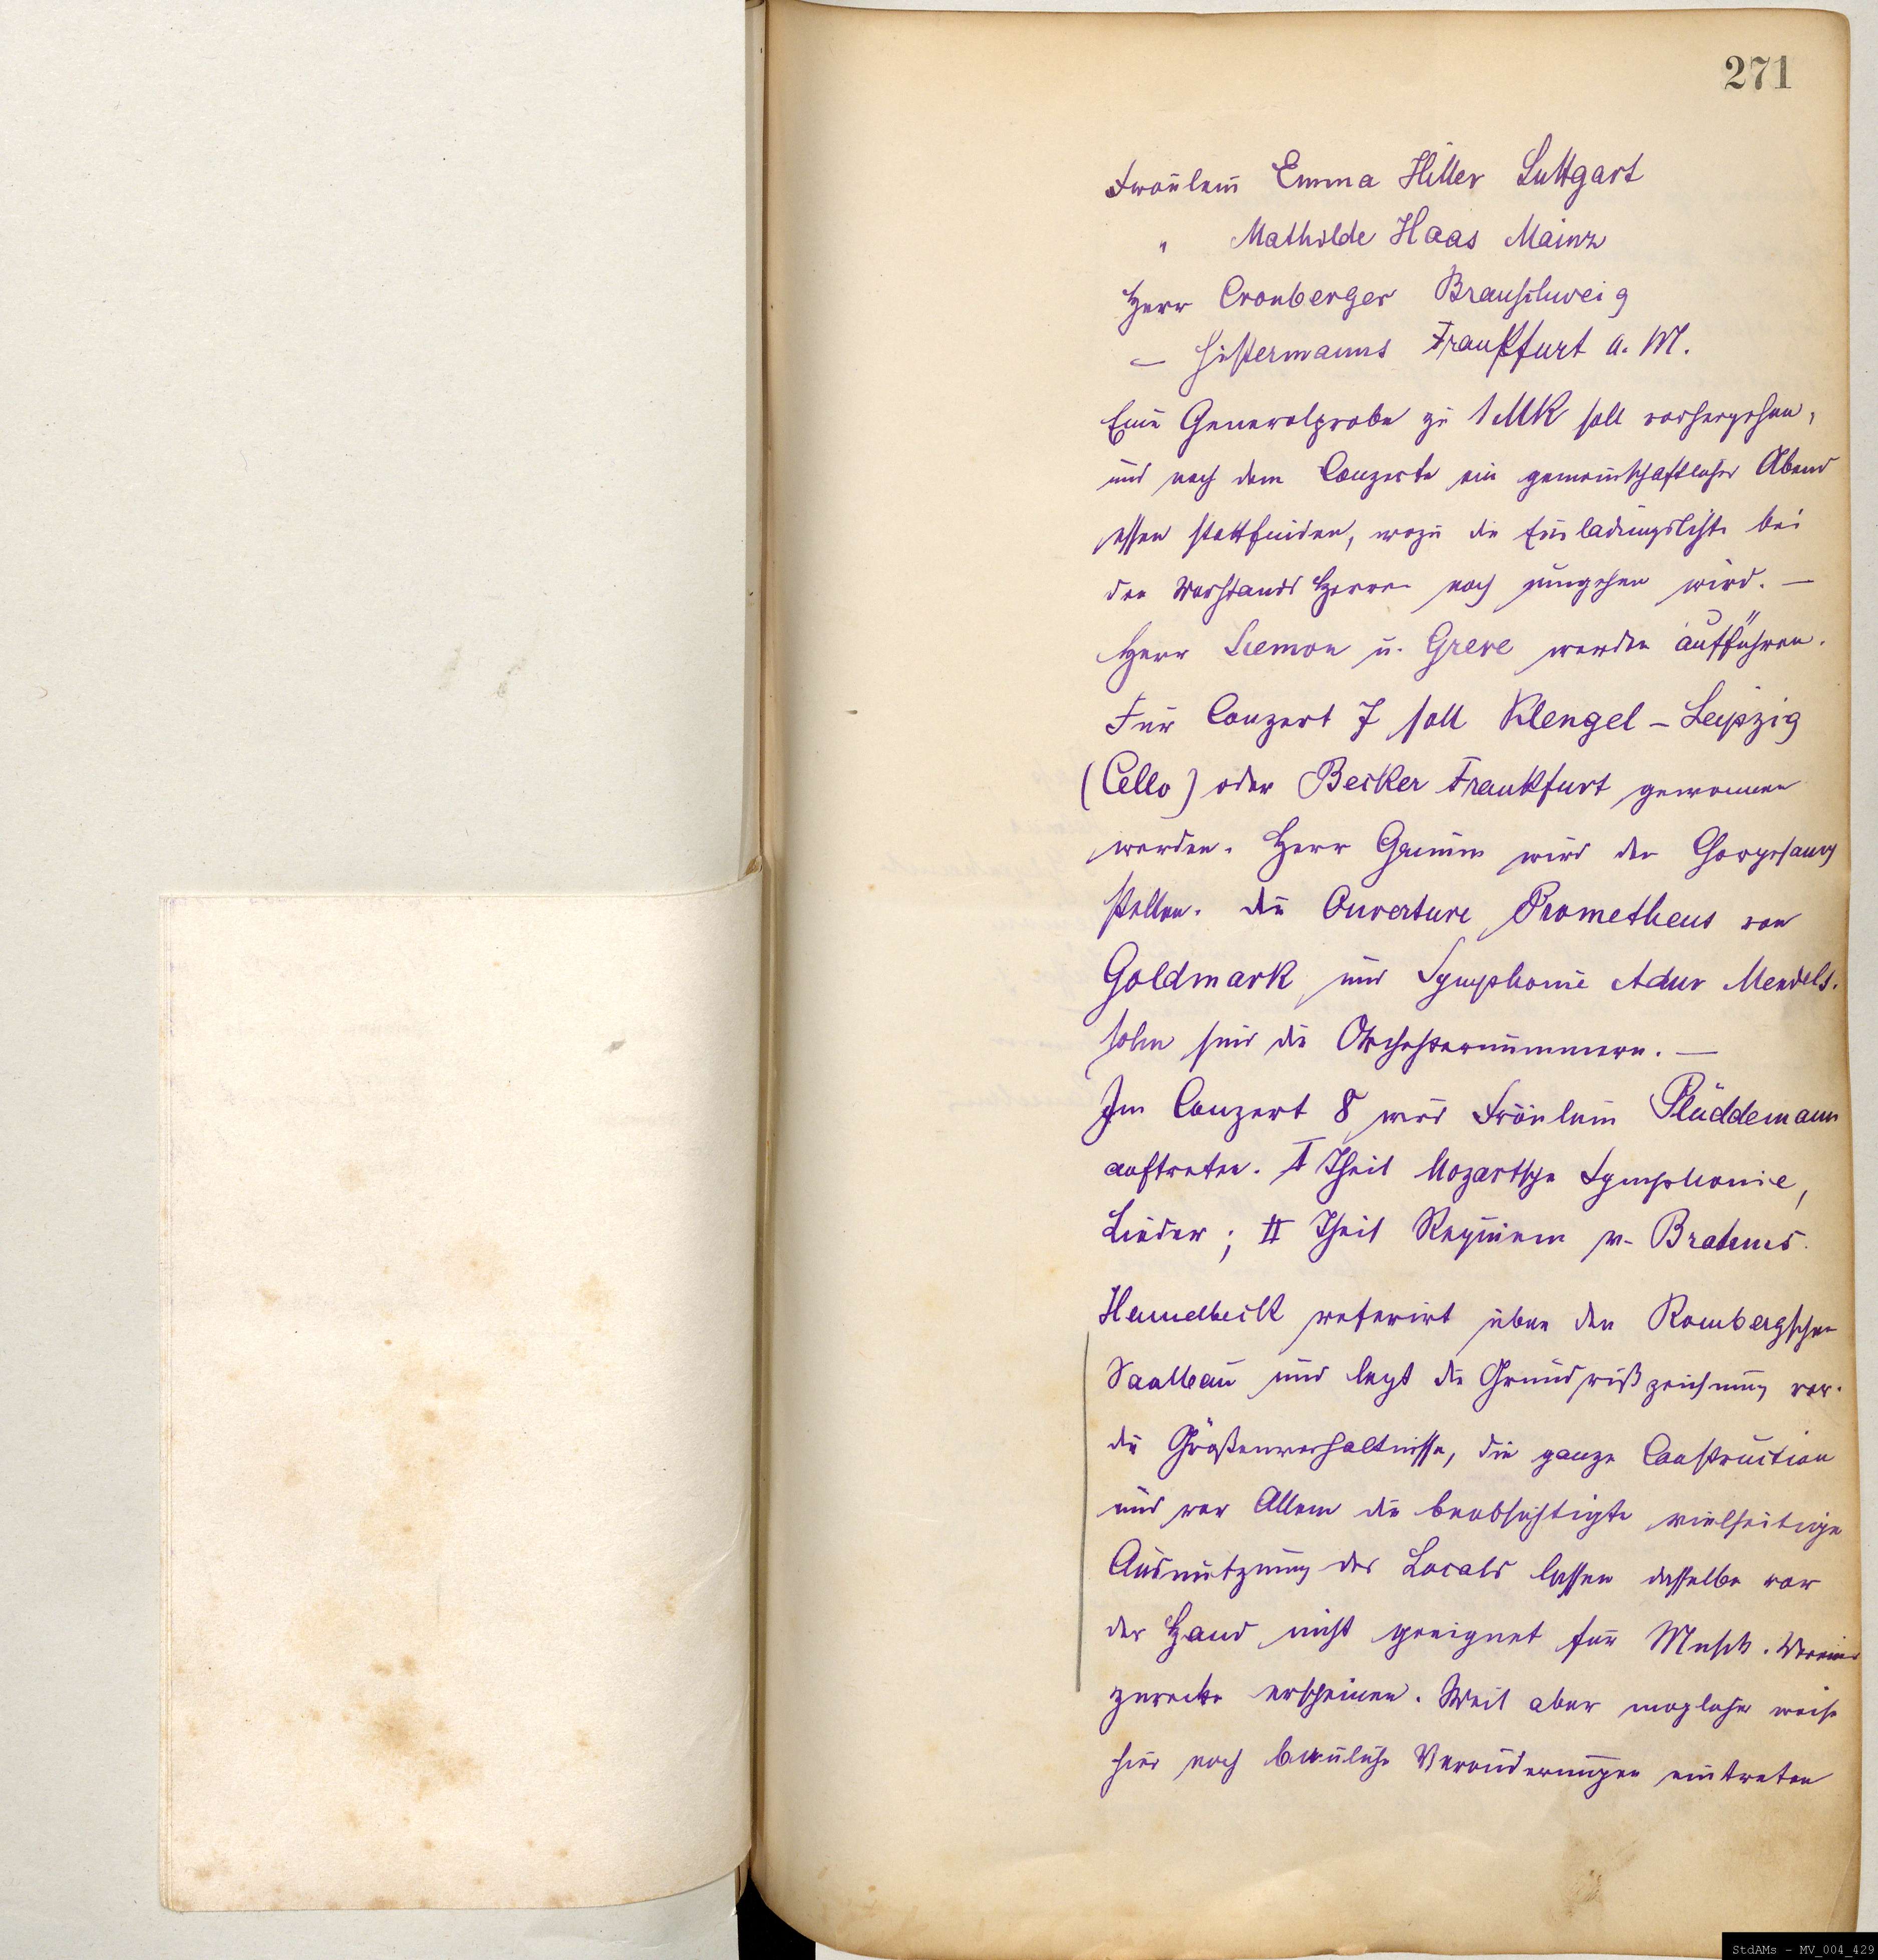 271
Fräulein Emma Hiller Stuttgart
" Mathilde Haas Mainz
Herr Cronberger Braunschweig
— Sistermanns Frankfurt a. M.
Eine Generalprobe zu 1 MK soll vorhergehen,
und nach dem Conzerte ein gemeinschaftliches Abend
essen stattfinden, wozu die Einladungsliste bei
den Vorstands Herren noch umgehen wird. —
Herr u. Greve werden aufführen.
Für Conzert 7 soll Klengel – Leipzig
(Cello) oder Becker Frankfurt gewonnen
werden. Herr Grimm wird den Chorgesang
stellen. Die Ouverture Prometheus von
Goldmark und Symphonie Adur Mendels.
sohn sind die Orchesternummern. —
Im Conzert 8 wird Fräulein Plüddemann
auftreten. I Theil Mozartsche Symphonie,
Lieder; II Theil Requiem v. Brahms.
referirt über den Rombergschen
Saalbau und legt die Grundrißzeichnung vor.
die Größenverhältnisse, die ganze Construction
und vor Allem die beabsichtigte vielseitige
Ausnutzung des Locals lassen dasselbe vor
der Hand nicht geeignet für Musik. Vereins
zwecke erscheinen. Weil aber möglicher weise
hier noch bauliche Veränderungen eintreten
StdAMs - MV_004_429